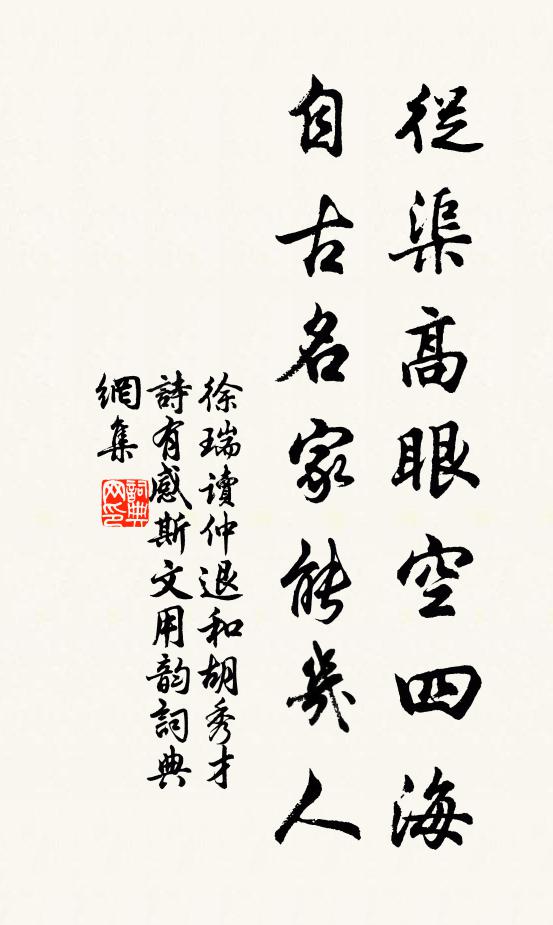 從渠高眼空四海
自古名家能幾人
徐瑞讀仲退和胡秀才
詩有感斯文用韵詞典
網集
詞典
网